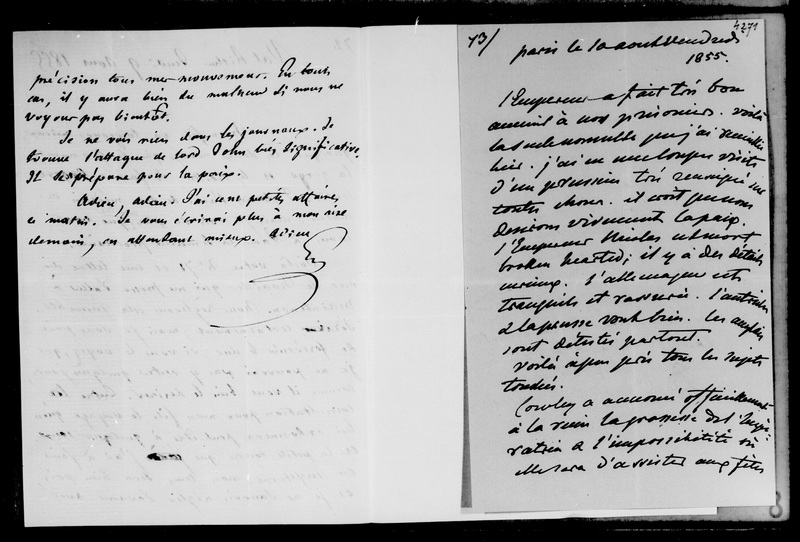 précision tous mes mouvemens. En tout
cas, il y aura bien du malheur si nous ne
voyons pas bientôt.
Je ne vois rien dans les journaux. Je
trouve l'attaque de lord John très significative.
Il se prépare pour la paix.
Adieu, adieu. J'ai cent petites affaires
ce matin. Je vous écrirai plus à mon aise
demain, en attendant mieux. Adieu
73/
4271
paris le 10 aout Vendredi
1855.
l'Empereur a fait très bon
accueil à nos prisoniers. voilà
la seule nouvelle que j'ai
hier. j'ai eu une longue visite
d'un prussien très renseigné sur
toutes choses. il croit que nous
desirons vivement la paix.
l'Empereur Nicolas est mort
broken hearted; il y a des détails
curieux. l'allemagne est
tranquille et rassurée. l'autriche
& la prusse vont bien. les anglais
sont détestés partout.
Voilà à peu près tous les sujets
touchés.
Cowley a annoncé officiellement
à la reine la grossesse de l'Impé-
ratrice & l'impossibilité où
elle sera d'assister aux fêtes